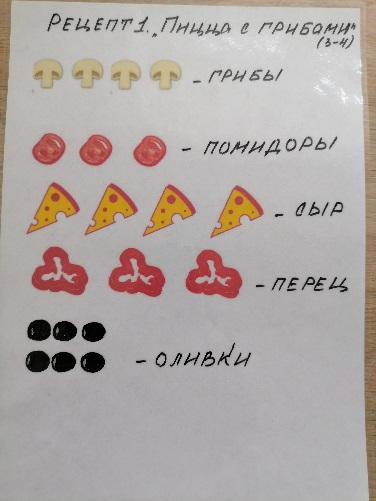 РЕЦЕПТ 1. „ПИЦЦА С ГРИБАМИ“
(3-4)
- ГРИБЫ
- ПОМИДОРЫ
- СЫР
- ПЕРЕЦ
- ОЛИВКИ